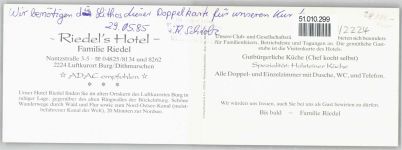 Wir benötigen Lithos dieser Doppelkarte für unseren Kur!
29.05.85
51.010.299
12224
~ Riedel's Hotel ~
Familie Riedel
Nantzstraße 3-5 ☎ 04825/8134 und 8262
2224 Luftkurort Burg/Dithmarschen
☆ ADAC empfohlen ☆
Unser Hotel Riedel finden Sie im alten Ortskern des Luftkurortes Burg in
ruhiger Lage, gegenüber des alten Ringwalles der Böcklnburg. Schöne
Wanderwege durch Wald und Flur sowie zum Nord-Ostsee-Kanal (meist-
befahrener Kanal der Welt), 20 Minuten zur Nordsee.
Unsere Club- und Gesellschaftsräume bieten sich besonders
für Familienfeiern, Betriebsfeste und Tagungen an. Die gemütliche Gast-
stube ist die Visitenkarte des Hotels.
Gutbürgerliche Küche (Chef kocht selbst)
Spezialität: Holsteiner Küche
Alle Doppel- und Einzelzimmer mit Dusche, WC, und Telefon.
Wir würden uns freuen, auch Sie bei uns als Gast bewirten zu dürfen.
Bis bald - Familie Riedel